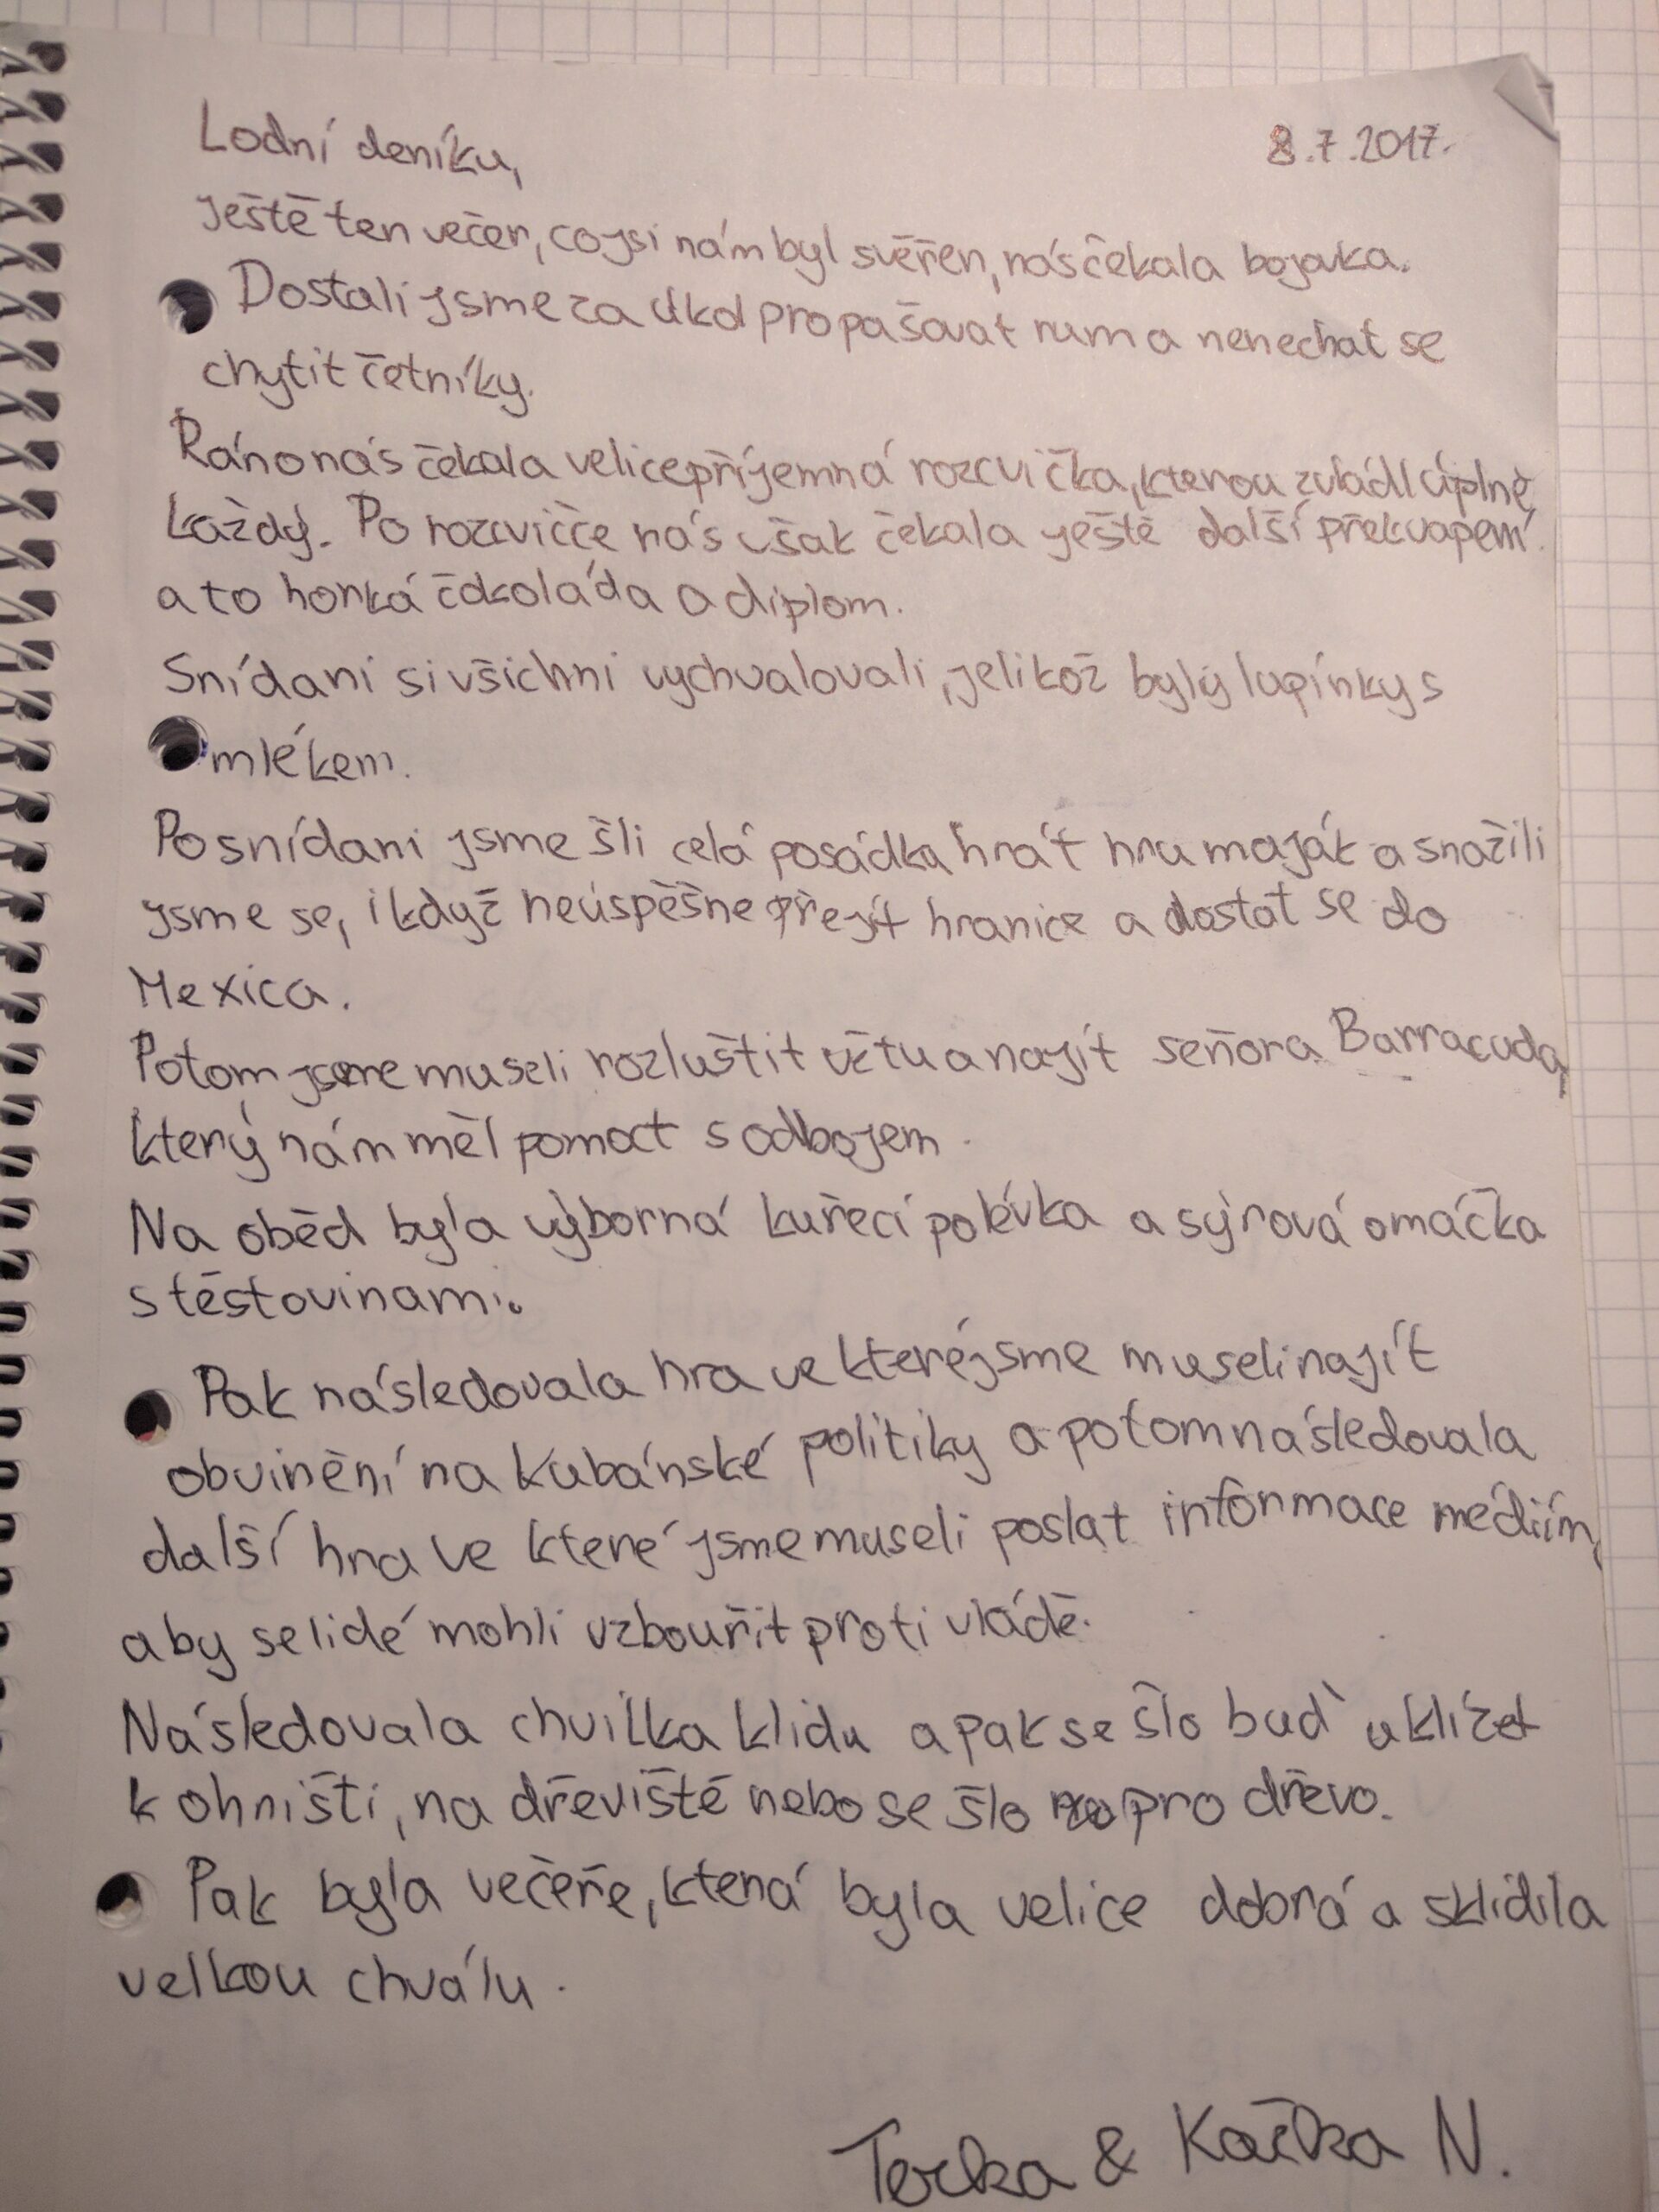 8.7.2017.
Lodní deníku,
ještě ten večer, co jsi nám byl svěřen, nás čekala bojovka.
Dostali jsme za úkol propašovat rum a nenechat se
chytit četníky.
Ráno nás čekala velice příjemná rozcvička, kterou zvládl úplně
každý. Po rozcvičce nás však čekala ještě další překvapení
a to horká čokoláda a diplom.
Snídani si všichni vychvalovali, jelikož byly lupínky s
mlékem.
Po snídani jsme šli celá posádka hrát hru maják a snažili
jsme se, i když neúspěšne přejít hranice a dostat se do
Mexica.
Potom jsme museli rozluštit větu a najít señora Barracuda,
který nám měl pomoct s odbojem.
Na oběd byla výborná kuřecí polévka a sýrová omáčka
s těstovinami.
Pak následovala hra ve které jsme museli najít
obvinění na Kubánské politiky a potom následovala
další hra ve které jsme museli poslat informace médiím,
aby se lidé mohli vzbouřit proti vládě.
Následovala chvilka klidu a pak se šlo buď uklízet
k ohništi, na dřeviště nebo se šlo pro dřevo.
Pak byla večeře, která byla velice dobrá a sklidila
velkou chválu.
Terka & Kačka N.